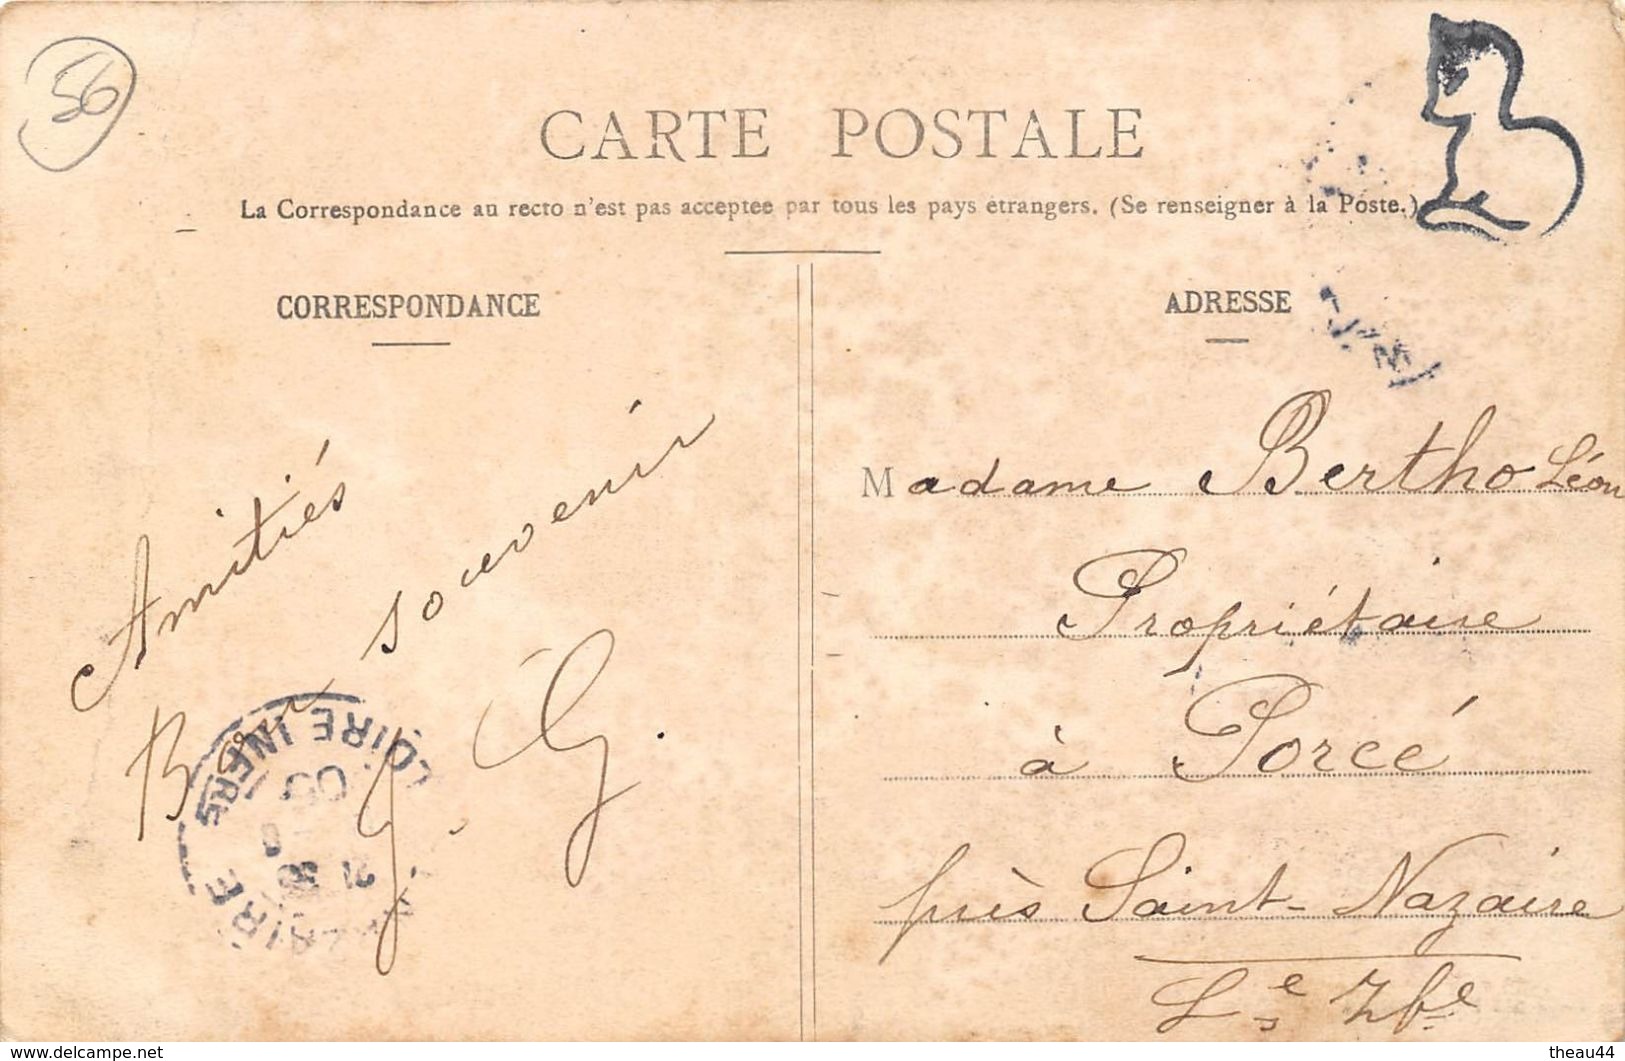 56
CARTE POSTALE
La Correspondance au recto n'est pas acceptee par tous les pays étrangers. (Se renseigner à la Poste.)
CORRESPONDANCE
Amitiés
Bon souvenir
G.
ADRESSE
Madame Bertho Léon
Propriétaire
à Porcé
près Saint-Nazaire
Lre Infre
LOIRE INFRE
theau44